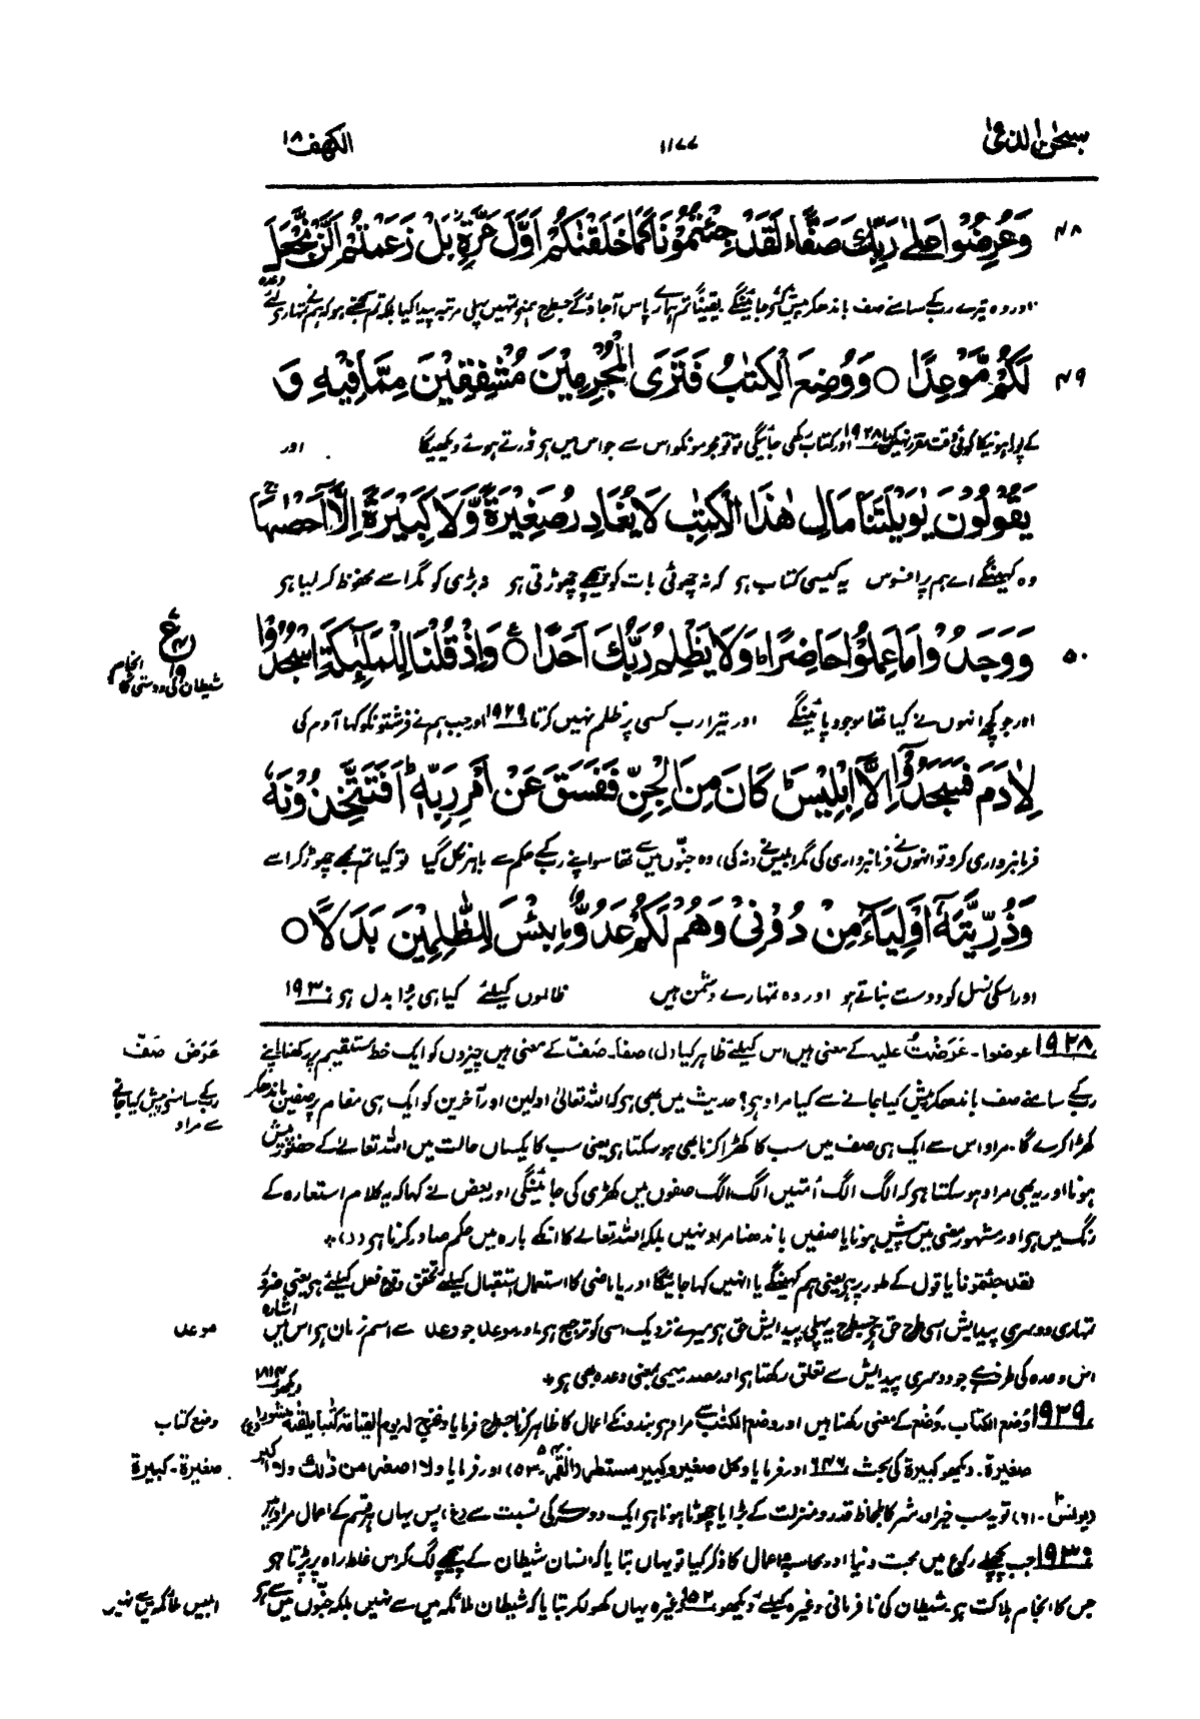 سبحٰن الذی ۱۵
۱۱۷۷
الکھف ۱۸
۴۸ وَعُرِضُوْا عَلٰی رَبِّكَ صَفًّا ؕ لَقَدْ جِئْتُمُوْنَا كَمَا خَلَقْنٰكُمْ اَوَّلَ مَرَّةٍۢ ؗ بَلْ زَعَمْتُمْ اَلَّنْ نَّجْعَلَ
اور وہ تیرے رب کے سامنے صف باندھکر پیش کئے جائینگے یقیناً تم ہمارے پاس آجاؤ گے جسطرح ہمنے تمہیں پہلی مرتبہ پیدا کیا بلکہ تم سمجھتے ہو کہ ہم نے تمہارے لئے وعدہ
۴۹ لَكُمْ مَّوْعِدًا ○ وَوُضِعَ الْكِتٰبُ فَتَرَی الْمُجْرِمِيْنَ مُشْفِقِيْنَ مِمَّا فِيْهِ وَ
کے پورا ہونیکا کوئی وقت مقرر نہیں کیا ۱۹۲۸ اور کتاب رکھی جائیگی تو تو مجرمونکو اس سے جو اس میں ہو ڈرتے ہوئے دیکھیگا اور
يَقُوْلُوْنَ يٰوَيْلَتَنَا مَالِ هٰذَا الْكِتٰبِ لَا يُغَادِرُ صَغِيْرَةً وَّلَا كَبِيْرَةً اِلَّاۤ اَحْصٰىهَا ۚ
وہ کہینگے اے ہم پر افسوس یہ کیسی کتاب ہو کہ نہ چھوٹی بات کو پیچھے چھوڑتی ہو نہ بڑی کو مگر اسے محفوظ کر لیا ہو
۵۰ وَوَجَدُوْا مَا عَمِلُوْا حَاضِرًا ؕ وَلَا يَظْلِمُ رَبُّكَ اَحَدًا ○ وَاِذْ قُلْنَا لِلْمَلٰٓئِكَةِ اسْجُدُوْا
ع
شیطان کی دوستی کا انجام
اور جو کچھ انہوں نے کیا تھا موجود پائینگے اور تیرا رب کسی پر ظلم نہیں کرتا ۱۹۲۹ اور جب ہم نے فرشتونکو کہا آدم کی
لِاٰدَمَ فَسَجَدُوْۤا اِلَّاۤ اِبْلِيْسَ ؕ كَانَ مِنَ الْجِنِّ فَفَسَقَ عَنْ اَمْرِ رَبِّهٖ ؕ اَفَتَتَّخِذُوْنَهٗ
فرمانبرداری کرو تو انہوں نے فرمانبرداری کی مگر ابلیس نے (نہ کی)، وہ جنّوں میں سے تھا سو اپنے رب کے حکم سے باہر نکل گیا تو کیا تم مجھے چھوڑ کر اسے
وَذُرِّيَّتَهٗۤ اَوْلِيَآءَ مِنْ دُوْنِیْ وَهُمْ لَكُمْ عَدُوٌّ ؕ بِئْسَ لِلظّٰلِمِيْنَ بَدَلًا ○
اور اسکی نسل کو دوست بناتے ہو اور وہ تمہارے دشمن ہیں ظالموں کیلئے کیا ہی بُرا بدل ہو ۱۹۳۰
۱۹۲۸ عرضوا۔ عَرَضْتُ علیہ کے معنی ہیں اس کیلئے ظاہر کیا (ل)، صفًا۔ صَفّ کے معنی ہیں چیزوں کو ایک خط مستقیم پر رکھنا اپنے
عَرَضَ صَفّ
رب کے سامنے صف باندھکر پیش کیا جانے سے کیا مراد ہو؟ حدیث میں بھی ہو کہ اللہ تعالیٰ اولین اور آخرین کو ایک ہی مقام پر صفیں باندھکر
رب کے سامنے پیش کیا جانے سے مراد
کھڑا کرے گا۔ مراد اس سے ایک ہی صف میں سب کا کھڑا کرنا بھی ہو سکتا ہو یعنی سب کا یکساں حالت میں اللہ تعالےٰ کے حضور پیش
ہونا اور یہ بھی مراد ہو سکتا ہو کہ الگ الگ اُمتیں الگ الگ صفوں میں کھڑی کی جائینگی اور بعض نے کہا کہ یہ کلام استعارہ کے
رنگ میں ہو اور مشہور معنی میں پیش ہونا یا صفیں باندھنا مراد نہیں بلکہ اللہ تعالے کا انکے بارہ میں حکم صادر کرنا ہو (د)،٭
لقد جئتمونا یا قول کے طور پر ہو یعنی ہم کہینگے یا انہیں کہا جائیگا اور یا ماضی کا استعمال استقبال کیلئے تحقق وقوع فعل کیلئے ہو یعنی ضرور
تمہاری دوسری پیدائش اسی طرح حق ہو جسطرح یہ پہلی پیدائش حق ہو میرے نزدیک اسی کو ترجیح ہو، اور موعد جو وعد سے اسم زمان ہو اس میں اشارہ
موعد
اس وعدہ کی طرف ہے جو دوسری پیدائش سے تعلق رکھتا ہو اور مصدر میمی بمعنی وعدہ بھی ہو٭
۱۹۲۹ وُضع الکتاب۔ وَضْع کے معنی رکھنا ہیں اور وضع الکتٰب سے مراد ہو بندونکے اعمال کا ظاہر کرنا جسطرح فرمایا ونخرج لہ یوم القیٰمۃ کتٰباً یلقٰہ منشورا (غ) دیکھو
وضع کتاب
صغیرۃ۔ دیکھو کبیرۃ کی بحث ۶۴۶ اور فرمایا وکل صغیر وکبیر مستطر (القمر۔ ۵۳) اور فرمایا ولا اصغر من ذٰلک ولا اکبر
صغیرۃ۔ کبیرۃ
(یونس۔ ۶۱) تو یہ سب خیر اور شر کا بلحاظ قدر و منزلت کے بڑا یا چھوٹا ہونا ہو ایک دوسرے کی نسبت سے (غ)، پس یہاں ہر قسم کے اعمال مراد ہیں
۱۹۳۰ جب پچھلے رکوع میں محبت دنیا اور محاسبہ اعمال کا ذکر کیا تو یہاں بتایا کہ انسان شیطان کے پیچھے لگ کر اس غلط راہ پر پڑتا ہو
جس کا انجام ہلاکت ہو۔ شیطان کی نافرمانی وغیرہ کیلئے دیکھو ۵۲ وغیرہ یہاں کھولکر بتایا کہ شیطان ملائکہ میں سے نہیں بلکہ جنّوں میں سے ہو
ابلیس ملائکہ میں سے نہیں